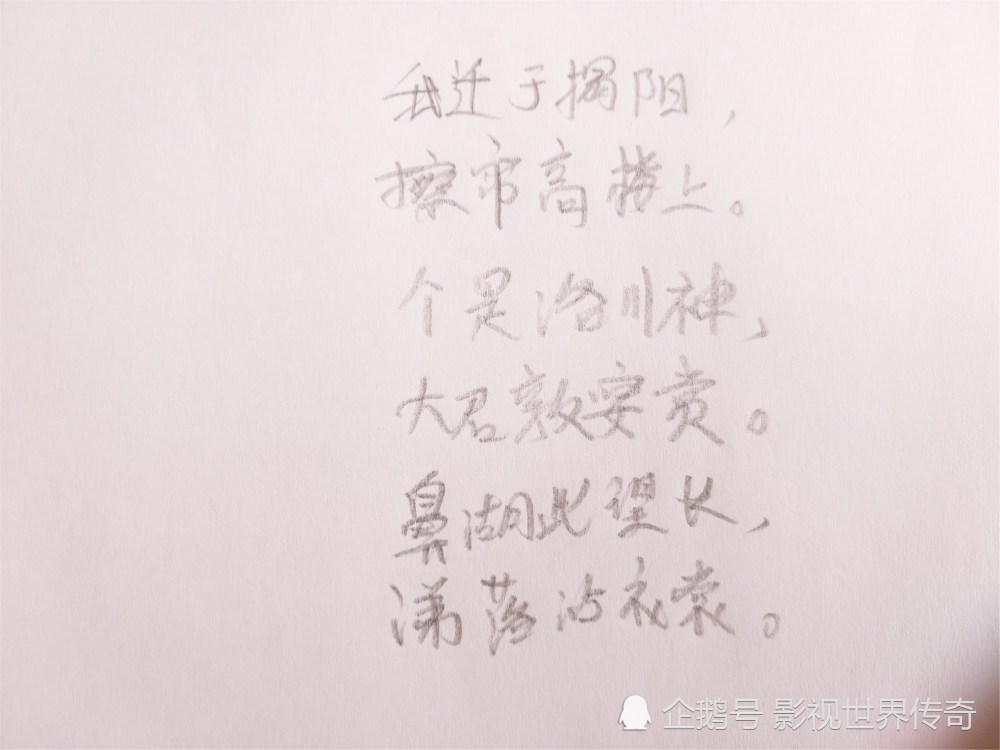 我迁于揭阳，
擦市高捞上。
个是洛川神，
大君敦安赏。
鼻湖此望长，
涕落沾衣裳。
企鹅号 影视世界传奇